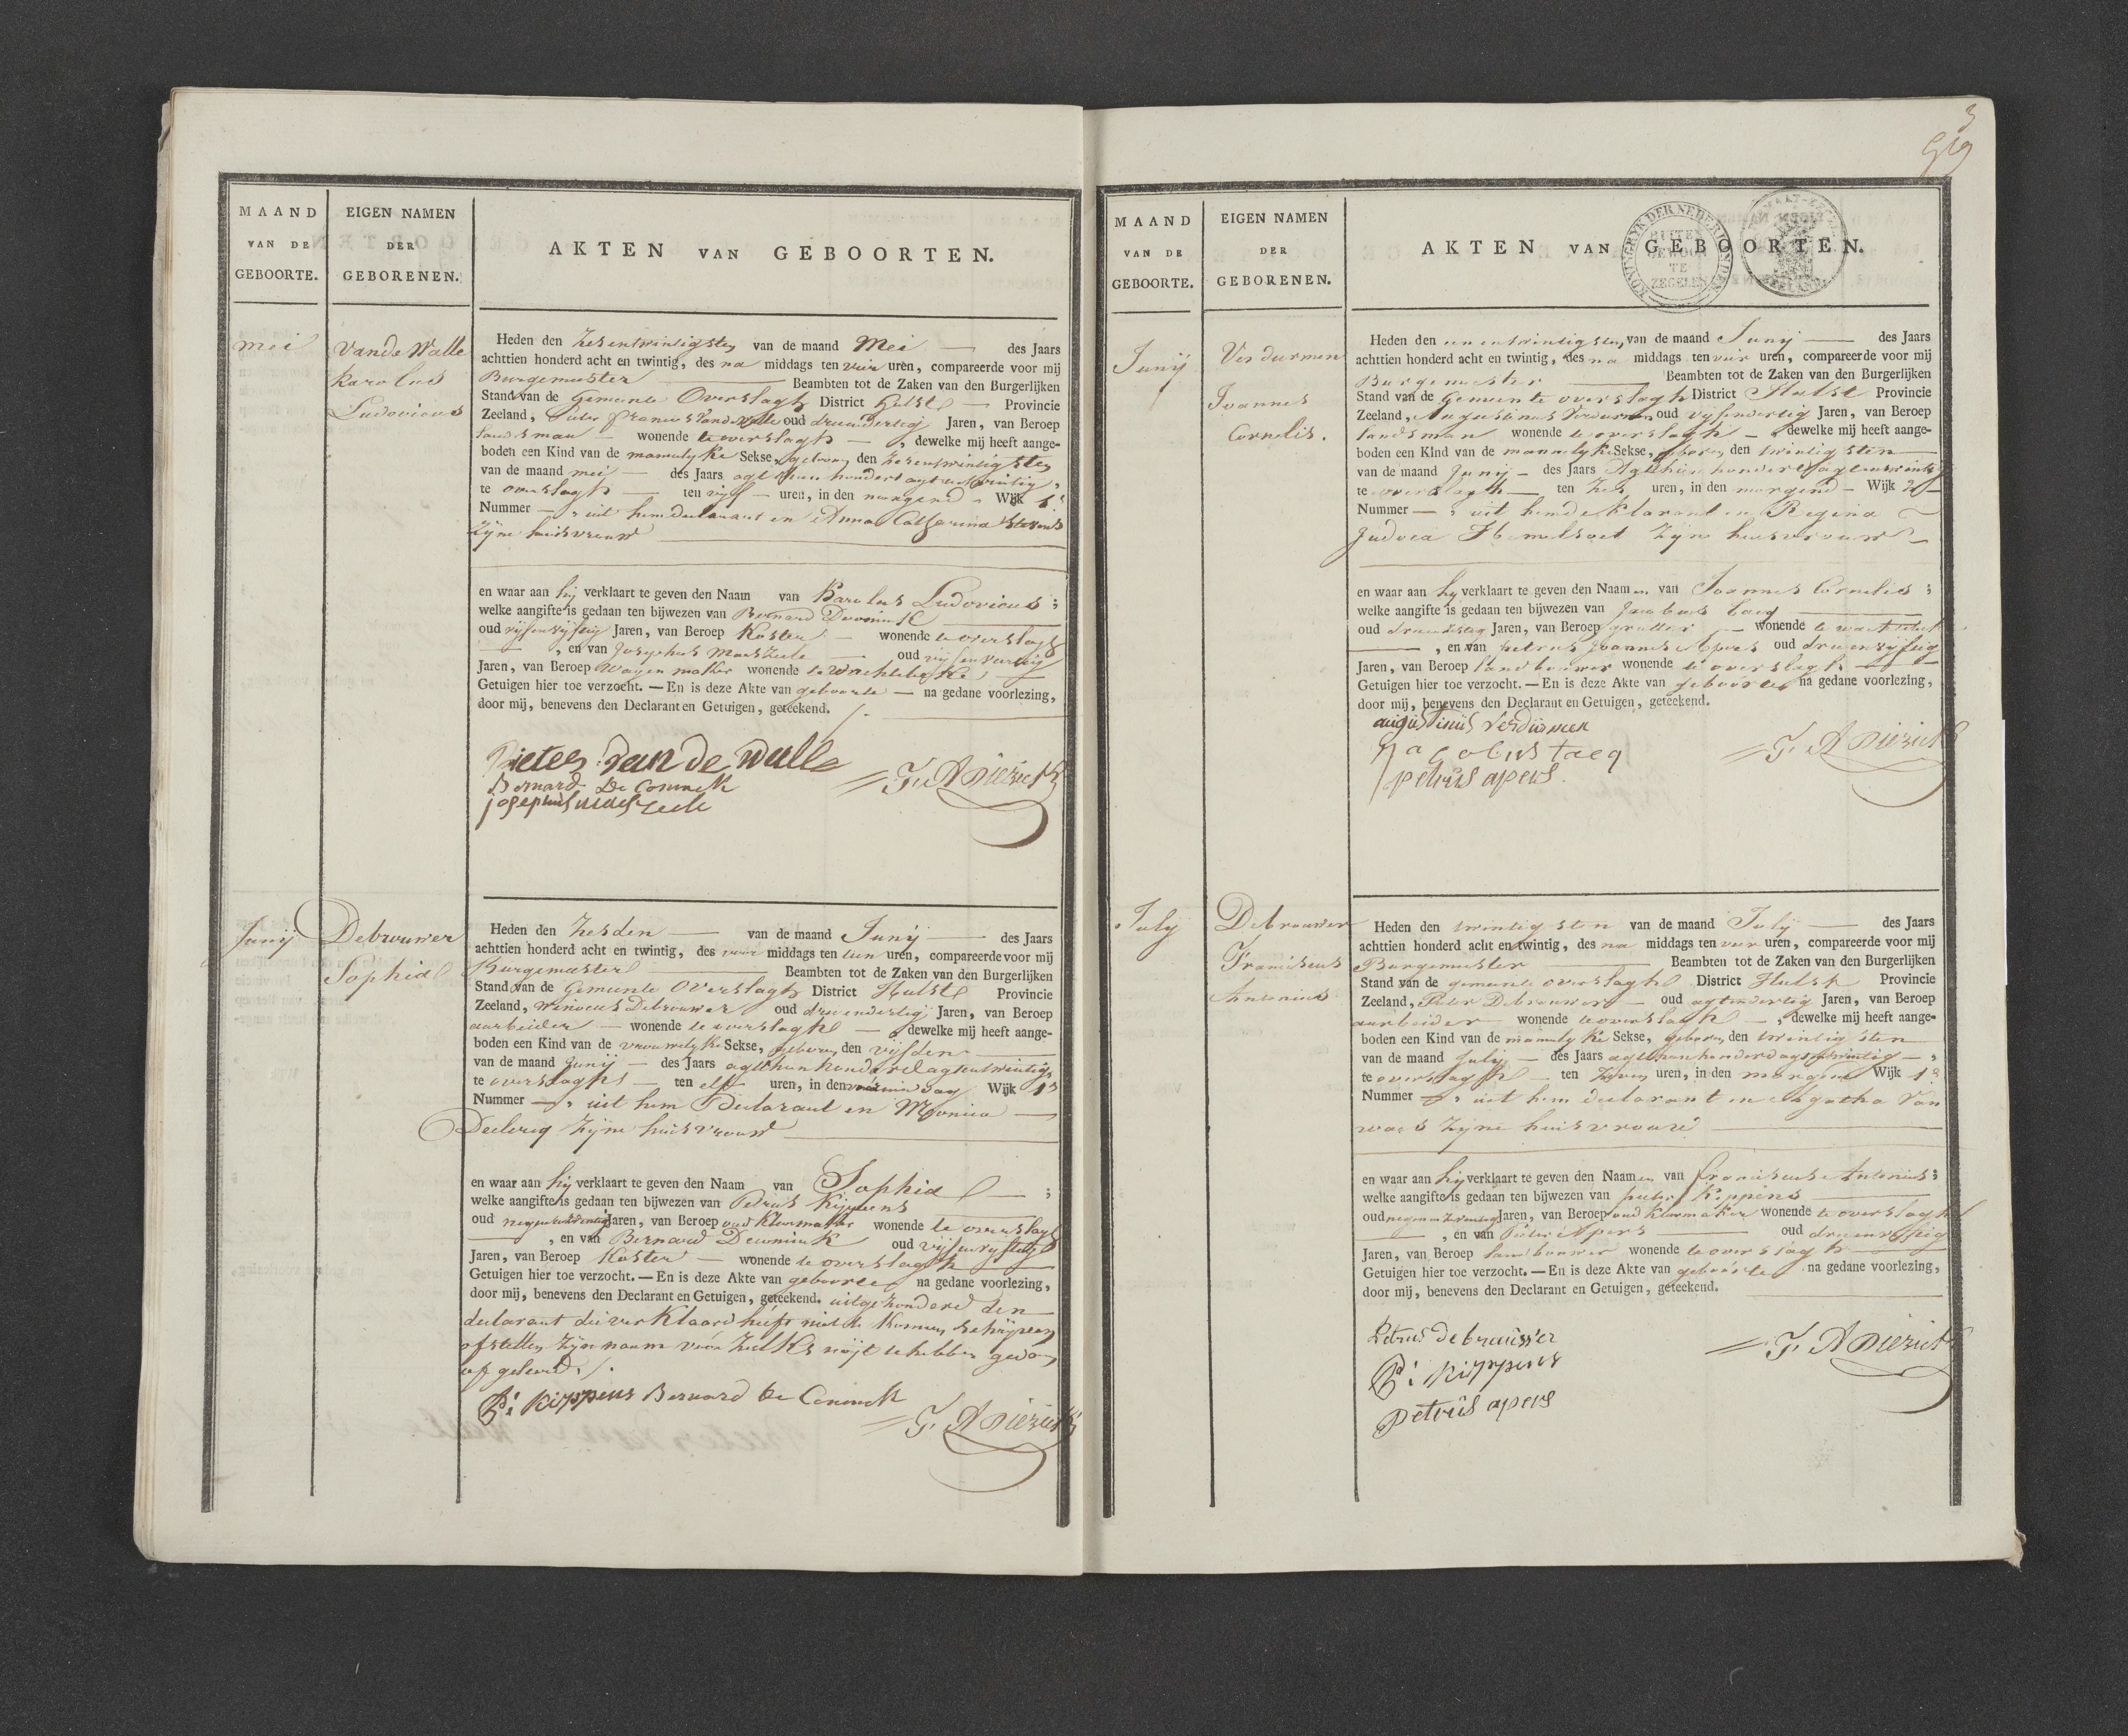 MAAND
VAN DE
GEBOORTE.
EIGEN NAMEN
DER
GEBORENEN.
AKTEN VAN GEBOORTEN.
mei
Vande Walle
Karolus
Ludovicus
Heden den Zesentwintigsten van de maand Mei — des Jaars
achttien honderd acht en twintig, des na middags ten vier uren, compareerde voor mij
Burgemeester — Beambten tot de Zaken van den Burgerlijken
Stand van de Gemeente Overslagh District Hulst — Provincie
Zeeland, Pieter Francus Vandewalle oud drieendertig Jaren, van Beroep
landsman — wonende te overslagh —, dewelke mij heeft aange-
boden een Kind van de mannelyke Sekse, geboren den Zesentwintigsten
van de maand mei — des Jaars agtthien hondert agtentwintig,
te overslagh — ten vijf — uren, in den morgend - Wijk 1e
Nummer —, uit hem declarant en Anna Catharina Stevens
Zyne huisvrouw
en waar aan hij verklaart te geven den Naam van Karolus Ludovicus;
welke aangifte is gedaan ten bijwezen van Bernard Deconinck
oud vijfenvijftig Jaren, van Beroep Koster — wonende te overslagh
—, en van Josephus Maeszeele — oud vijfenveertig
Jaren, van Beroep Wagenmaker wonende te Wachtebeke
Getuigen hier toe verzocht. — En is deze Akte van geboorte — na gedane voorlezing,
door mij, benevens den Declarant en Getuigen, geteekend.
Pieter Van de Walle
Bernard De Coninck
josephus maeszeele
F. A Diericks
Junij
Debrouwer
Sophia
Heden den Zesden — van de maand Junij — des Jaars
achttien honderd acht en twintig, des voor middags ten tien uren, compareerde voor mij
Burgemeester — Beambten tot de Zaken van den Burgerlijken
Stand van de Gemeente Overslagh District Hulst Provincie
Zeeland, Winocus Debrouwer oud drieendertig Jaren, van Beroep
aarbeider — wonende te overslagh —, dewelke mij heeft aange-
boden een Kind van de vrouwelyke Sekse, geboren den vijfden
van de maand Junij — des Jaars agtthien honderd agtentwintig,
te overslagh — ten elf uren, in den Wijk 1e
Nummer —, uit hem Declarant en Monica —
Declercq Zijne huisvrouw
en waar aan hij verklaart te geven den Naam van Sophia —;
welke aangifte is gedaan ten bijwezen van Petrus Kippens
oud Jaren, van Beroep oud Klermaker wonende te overslagh
—, en van Bernard Deconinck oud vijfenvijftig
Jaren, van Beroep Koster — wonende te overslagh
Getuigen hier toe verzocht. — En is deze Akte van geboorte na gedane voorlezing,
door mij, benevens den Declarant en Getuigen, geteekend. uitgezonderd den
declarant die verklaard heeft niet te konnen schrijven
ofstellen zijn naam voor zulks nojt te hebben gedaan
of geleerd /.
P: Kippens Bernard De Coninck
F. A Diericks
3
MAAND
VAN DE
GEBOORTE.
EIGEN NAMEN
DER
GEBORENEN.
AKTEN VAN GEBOORTEN.
KONINGRYK DER NEDERLANDEN
BUITEN
GEWOON
TE
ZEGELEN
Junij
Verdurmen
Joannes
Cornelis.
Heden den een entwintigsten van de maand Junij — des Jaars
achttien honderd acht en twintig, des na middags ten vier uren, compareerde voor mij
Burgemeester — Beambten tot de Zaken van den Burgerlijken
Stand van de Gemeente overslagh District Hulst Provincie
Zeeland, Augustinus Verdurmen oud vijfendertig Jaren, van Beroep
landsman wonende te overslagh —, dewelke mij heeft aange-
boden een Kind van de mannelyke Sekse, geboren den twintigsten
van de maand Junij — des Jaars Agtthien honderd agtentwintig
te overslagh — ten Zes uren, in den morgend — Wijk 2
Nummer —, uit hem deklarant en Regina
Judoca Hemelsoet Zyne huisvrouw
en waar aan hy verklaart te geven den Naamen van Joannes Cornelis;
welke aangifte is gedaan ten bijwezen van Jacobus Taeq
oud Jaren, van Beroep — wonende te
—, en van petrus Joannes Apers oud drienvijftig
Jaren, van Beroep landbouwer wonende te overslagh
Getuigen hier toe verzocht. — En is deze Akte van geboorte na gedane voorlezing,
door mij, benevens den Declarant en Getuigen, geteekend.
augustinus Verdurmen
Jacobus taeq
petrus apers
F. A Diericks
July
Debrouwer
Franciscus
Antonius
Heden den twintigsten van de maand July — des Jaars
achttien honderd acht en twintig, des na middags ten vier uren, compareerde voor mij
Burgemeester — Beambten tot de Zaken van den Burgerlijken
Stand van de gemeente overslagh District Hulst Provincie
Zeeland, Pieter Debrouwer — oud agtendertig Jaren, van Beroep
aarbeider — wonende te overslagh —, dewelke mij heeft aange-
boden een Kind van de mannelyke Sekse, geboren den twintigsten
van de maand July — des Jaars agtthienhonderdagtentwintig —,
te overslagh — ten Zeven uren, in den morgend Wijk 1e
Nummer —, uit hem declarant en Agatha Van
waes Zyne huisvrouw
en waar aan hij verklaart te geven den Naamen van Franciscus Antonius;
welke aangifte is gedaan ten bijwezen van pieter Kippens
oud Jaren, van Beroep oud Klermaker wonende te overslagh
—, en van Pieter Apers oud drienvijftig
Jaren, van Beroep landbouwer wonende te overslagh
Getuigen hier toe verzocht. — En is deze Akte van geboorte na gedane voorlezing,
door mij, benevens den Declarant en Getuigen, geteekend.
Petrus debrauwer
P: Kippens
petrus apers
F. A Diericks